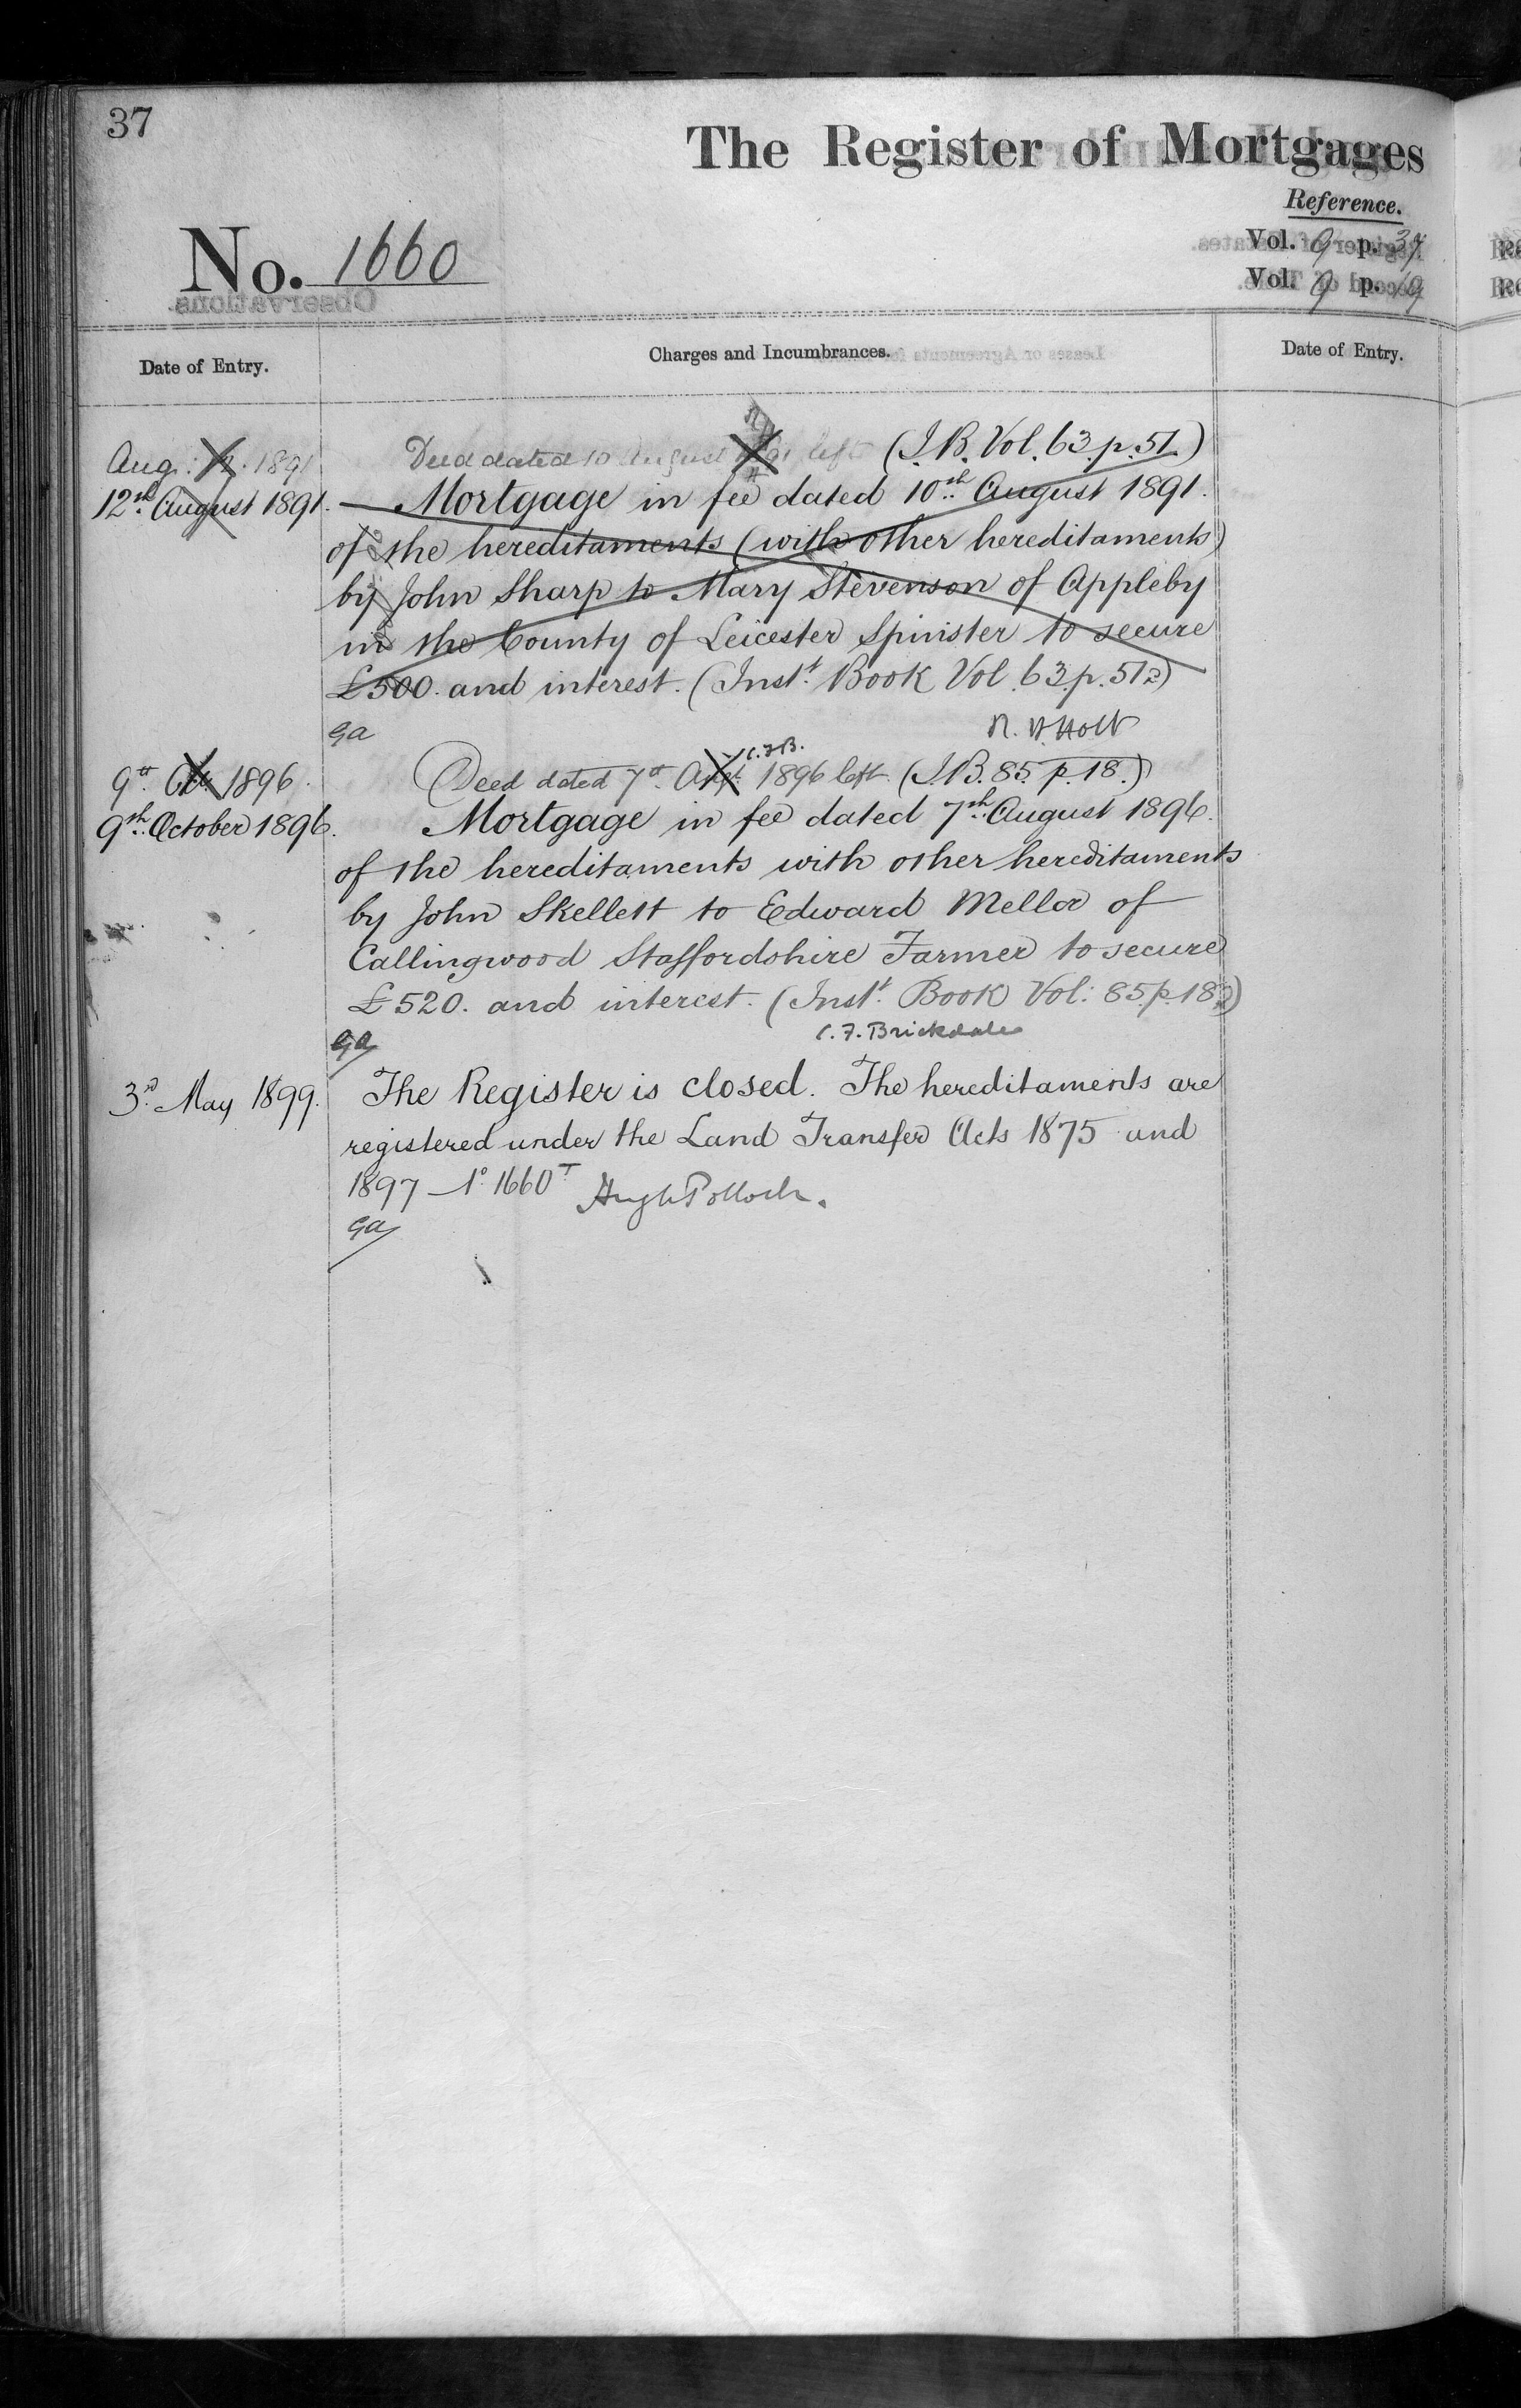 37
The Register of Mortgages
Reference.
No. 1660
Vol. 9 p. 37
Vol. 9 p. 19
Date of Entry.
Charges and Incumbrances.
Date of Entry.
Aug: 12. 1891
Deed dated 10 August 1891 left (I.B. Vol. 63. p. 51.)
12th August 1891. Mortgage in fee dated 10th August 1891.
of the hereditaments (with other hereditaments)
by John Sharp to Mary Stevenson of Appleby
in the County of Leicester Spinster to secure
£500. and interest. (Inst. Book Vol. 63. p. 51 2)
ga
R. W. Holt
C.F.B.
9th Oct. 1896. Deed dated 7th Augt. 1896 left. (I.B. 85. p. 18.)
9th October 1896. Mortgage in fee dated 7th August 1896.
of the hereditaments with other hereditaments
by John Skellett to Edward Mellor of
Callingwood Staffordshire Farmer to secure
£520. and interest. (Inst. Book Vol: 85. p. 18 2)
ga
C. F. Brickdale
3rd May 1899. The Register is closed. The hereditaments are
registered under the Land Transfer Acts 1875 and
1897 No. 1660T Hugh Pollock.
ga